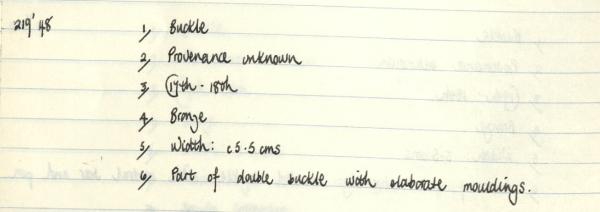 219'48 1, Buckle
2, Provenance unknown
3, 17th - 18th
4, Bronze
5, Width: c 5.5 cms
6, Part of double buckle with elaborate mouldings.